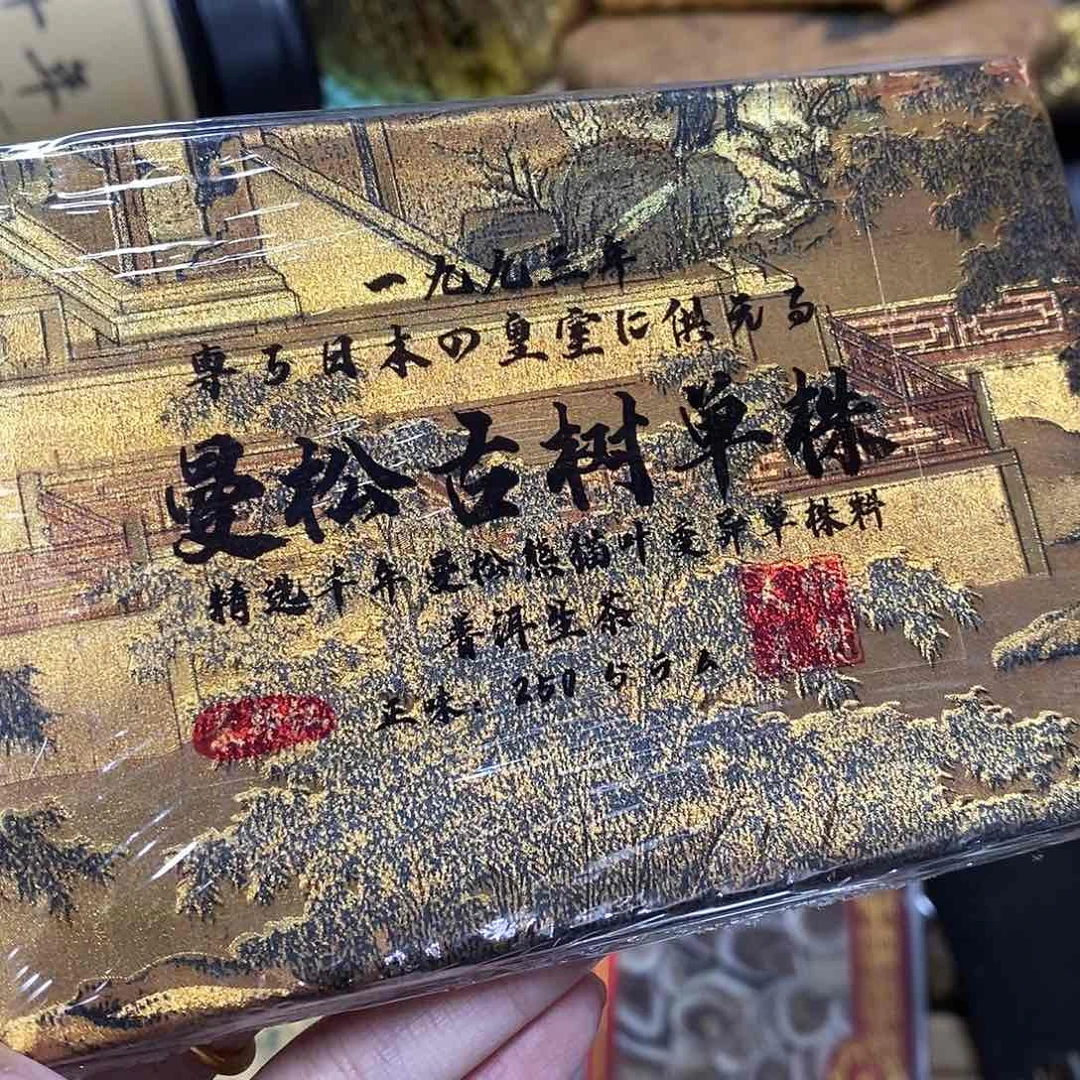 一九九三年
専ら日本の皇室に供先る
曼松古树单株
精选千年曼松熊猫叶变异单株料
普洱生茶
正味．250 らラム